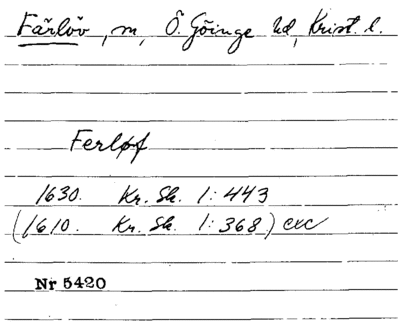 Färlöv, m, Ö. Göinge hd, Krist. l.
Ferløf
1630. Kr. Sk. 1:443
(1610. Kr. Sk. 1:368) exc
Nr 5420